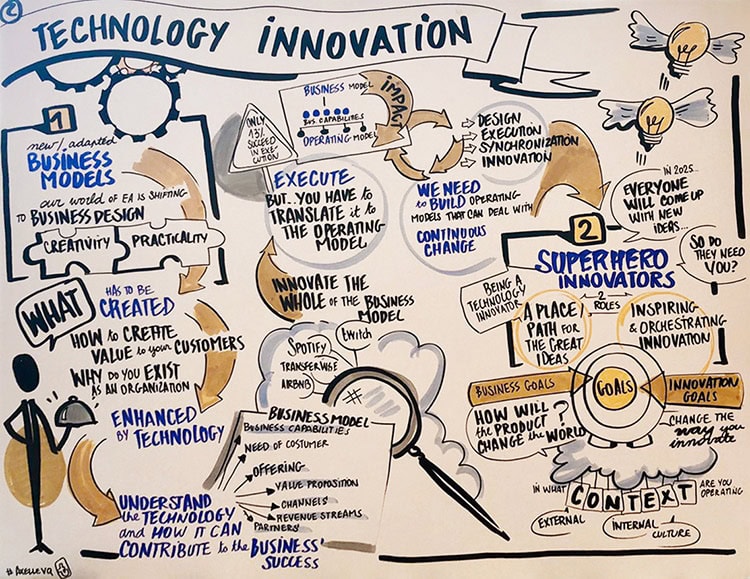 2
TECHNOLOGY INNOVATION
1
new/adapted
BUSINESS
MODELS
our world of EA is SHIFTING
TO BUSINESS DESIGN
CREATIVITY
PRACTICALITY
WHAT
HAS to BE
CREATED
HOW to CREATE
VALUE to your CUSTOMERS
WHY DO YOU EXIST
AS AN ORGANIZATION
ENHANCED
by TECHNOLOGY
UNDERSTAND
the TECHNOLOGY
and HOW IT CAN
CONTRIBUTE to the BUSINESS'
SUCCESS
BUSINESS MODEL
BUSINESS CAPABILITIES
NEED OF COSTUMER
OFFERING
VALUE PROPOSITION
CHANNELS
REVENUE STREAMS
PARTNERS
SPOTIFY
twitch
TRANSFERWISE
AIRBNB
INNOVATE THE
WHOLE OF THE BUSINESS
MODEL
EXECUTE
BUT.. YOU HAVE to
TRANSLATE it to
THE OPERATING
MODEL
ONLY
13%
SUCCEED
IN EXE-
CUTION
BUSINESS MODEL
BUS. CAPABILITIES
OPERATING MODEL
IMPACT
DESIGN
EXECUTION
SYNCHRONIZATION
INNOVATION
WE NEED
to BUILD OPERATING
MODELS THAT CAN DEAL WITH
CONTINUOUS
CHANGE
IN 2025...
EVERYONE
WILL COME UP
WITH NEW
IDEAS...
SO DO
THEY NEED
YOU?
2
SUPERHERO
INNOVATORS
BEING A
TECHNOLOGY
INNOVATOR
2
ROLES
A PLACE/
PATH FOR
THE GREAT
IDEAS
INSPIRING
& ORCHESTRATING
INNOVATION
BUSINESS GOALS
GOALS
INNOVATION
GOALS
HOW WILL
the PRODUCT
CHANGE the WORLD?
CHANGE THE
way you
innovate
IN WHAT CONTEXT ARE YOU
OPERATING
EXTERNAL
INTERNAL
CULTURE